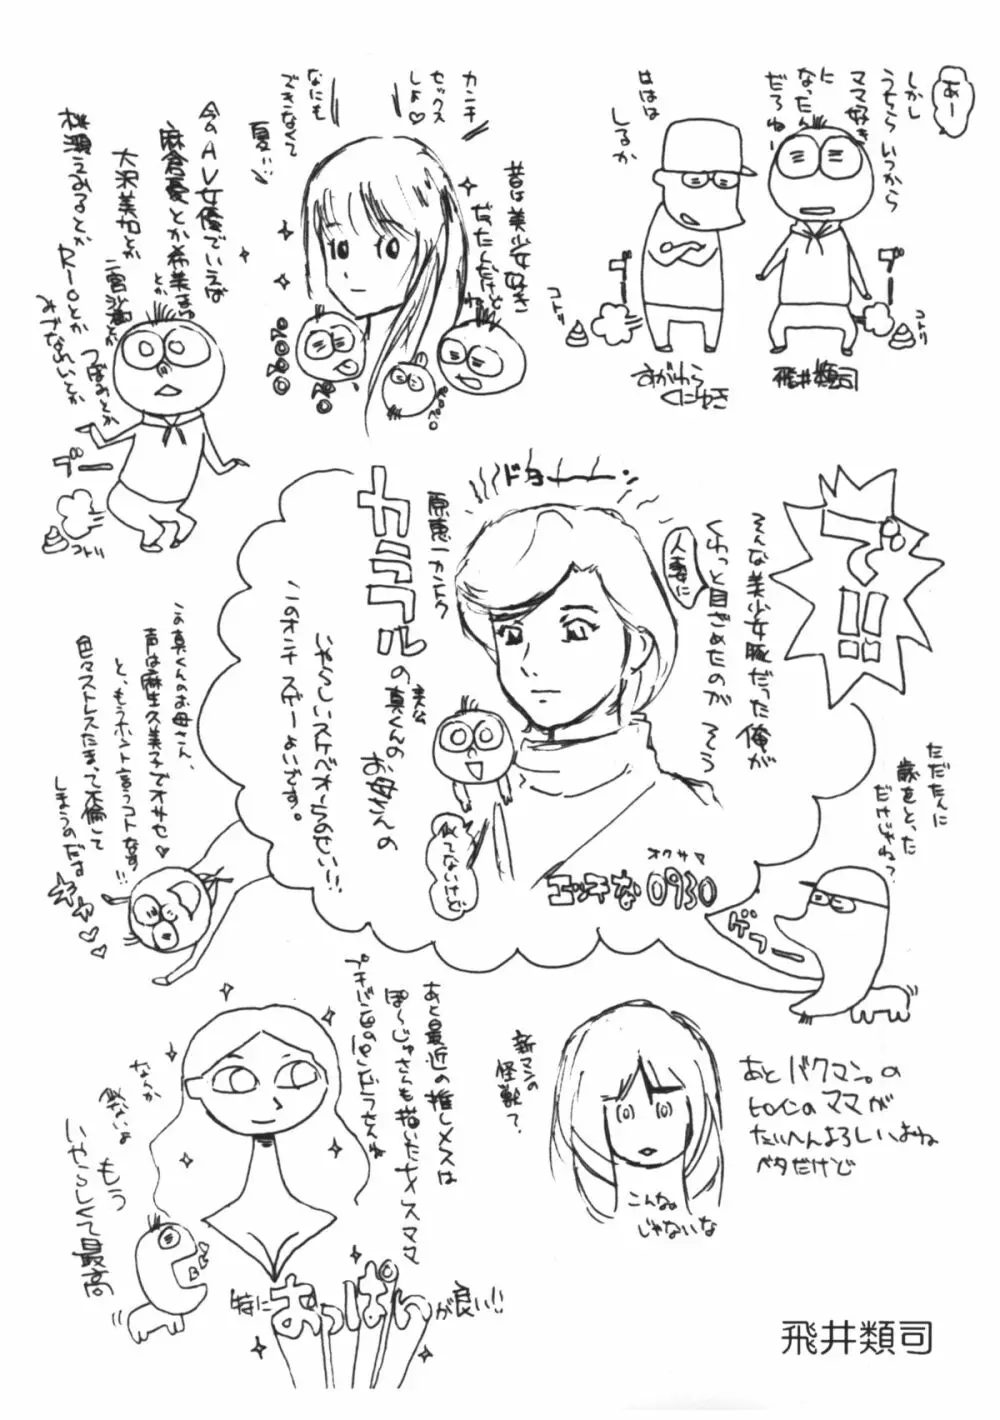 あー
しかし
うちらいつから
ママ好き
に
なったん
だろねー
ははは
しるか
ブー
コトリ
ブー
コトリ
すがわら
くにゆき
飛井類司
カンチ
セックス
しよ♡
なにも
できなくて
夏…
昔は美少女好き
だったんだけど
ね
ペロペロ
今のAV女優でいえば
麻倉憂とか希美まゆ
とか
大沢美加とか
二宮沙樹とか
つぼみとか
桃瀬えみるとか
Rioとか
みづなれいとか
ブー
コトリ
プ!!
ドキューーーン
そんな美少女豚だった俺が
くわっと目ざめたのが そう
人妻に
原恵一カントク
カラフルの
主人公
真くんの
お母さんの
いやらしいスケベオーラのせい!!
このオンナ スゲーよいです。
似てないけど
オクサマ
エッチな0930
ただたんに
歳をとった
だけじゃね?
ゲフー
この真くんのお母さん、
声は麻生久美子でオサセ♡
と、もうホント言うコトなす!!
色々ストレスたまって不倫して
しまうのだす
あと最近の推しメスは
ぽ〜じゅさんも描いたナメスママ
プチバン田のパンドラさんね
なんか
似ないよ もう
いやらしくて最高
特におっぱいが良い!!
新マンの
怪獣?
こんな。
じゃないな
あとバクマン。の
ヒロインのママが
たいへんよろしいよね
ベタだけど
飛井類司